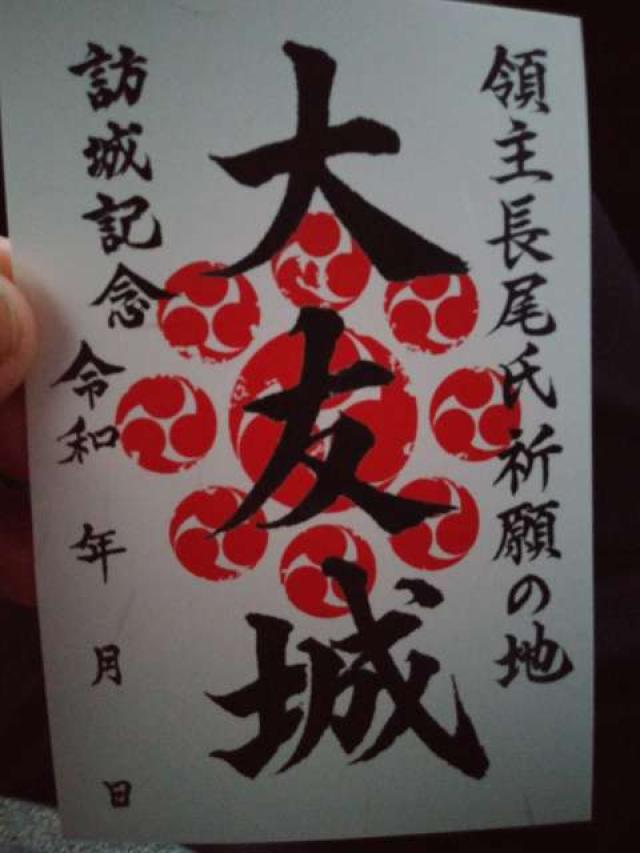 領主長尾氏祈願の地
大友城
訪城記念
令和 年 月 日